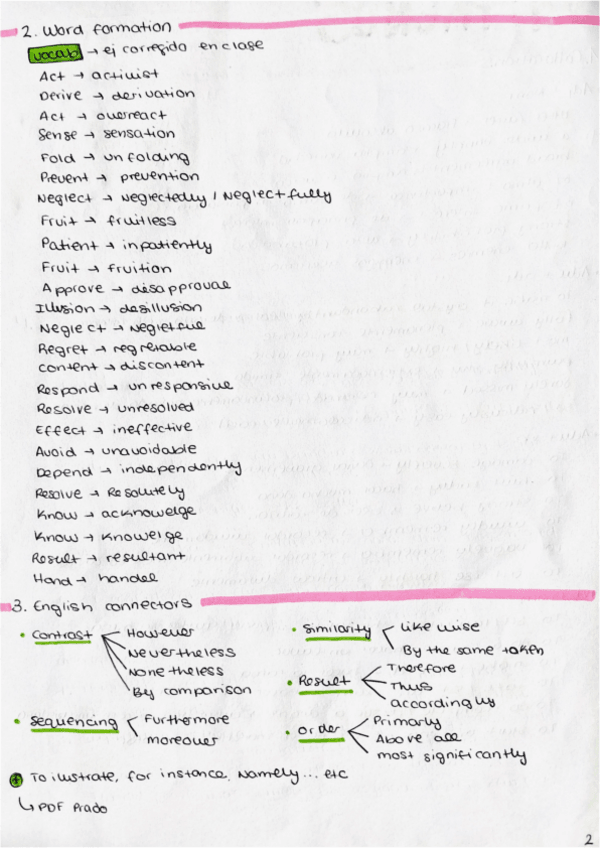 2. Word formation
vocab → ej corregido en clase
Act → activist
Derive → derivation
Act → overreact
Sense → sensation
Fold → unfolding
Prevent → prevention
Neglect → neglectedly / neglectfully
Fruit → fruitless
Patient → inpatiently
Fruit → fruition
Approve → disapproval
Illusion → desillusion
Neglect → negletful
Regret → regretable
content → discontent
Respond → unresponsive
Resolve → unresolved
Effect → ineffective
Avoid → unavoidable
Depend → independently
Resolve → Resolutely
Know → acknowelge
Know → knowelge
Result → resultant
Hand → handel
3. English connectors
• Contrast
However
Nevertheless
Nonetheless
By comparison
• Sequencing
Furthermore
moreover
• Similarity
Likewise
By the same token
• Result
Therefore
Thus
accordingly
• Order
Primarly
Above all
most significantly
+ To ilustrate, for instance, Namely... etc
↳ PDF Prado
2